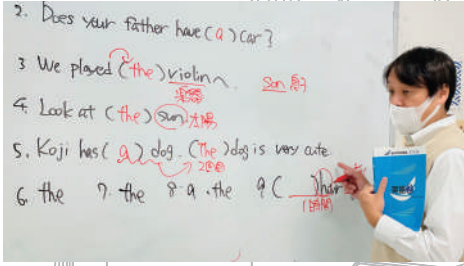 2. Does your father have ( a ) car?
3 We played ( the ) violin.
楽器
son 息子
4. Look at ( the ) sun. 太陽
5. Koji has ( a ) dog. ( The ) dog is very cute.
2回目
6. the 7. the 8. a . the 9 ( ) hour
1時間